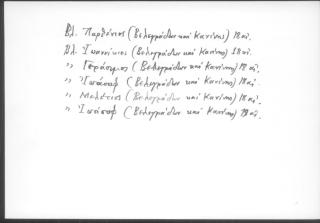 Βλ. Παρθένιος (Βελεγράδων καί Κανίνης) 18 αἰ.
Βλ. Ἰωαννίκιος (Βελεγράδων καί Κανίνης) 18 αἰ.
" Γεράσιμος (Βελεγράδων καί Κανίνης) 18 αἰ.
" Ἰωάσαφ (Βελεγράδων καί Κανίνης) 18 αἰ.
" Μελέτιος (Βελεγράδων καί Κανίνης) 18 αἰ.
" Ἰωάσαφ (Βελεγράδων καί Κανίνης) 19 αἰ.